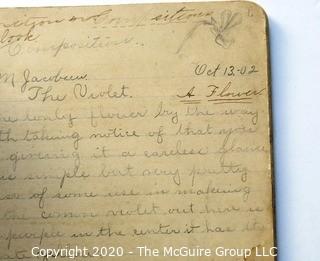 Compositions
look
Composition.
M Jacobsen
Oct 13-02
The Violet.
A Flower
only flower by the way
th taking notice of that you
giveing it a careless glance
is simple but very pretty
se of some use in makeing
the comm violet out here is
purple in the center it has
© Copyright 2020 - The McGuire Group LLC